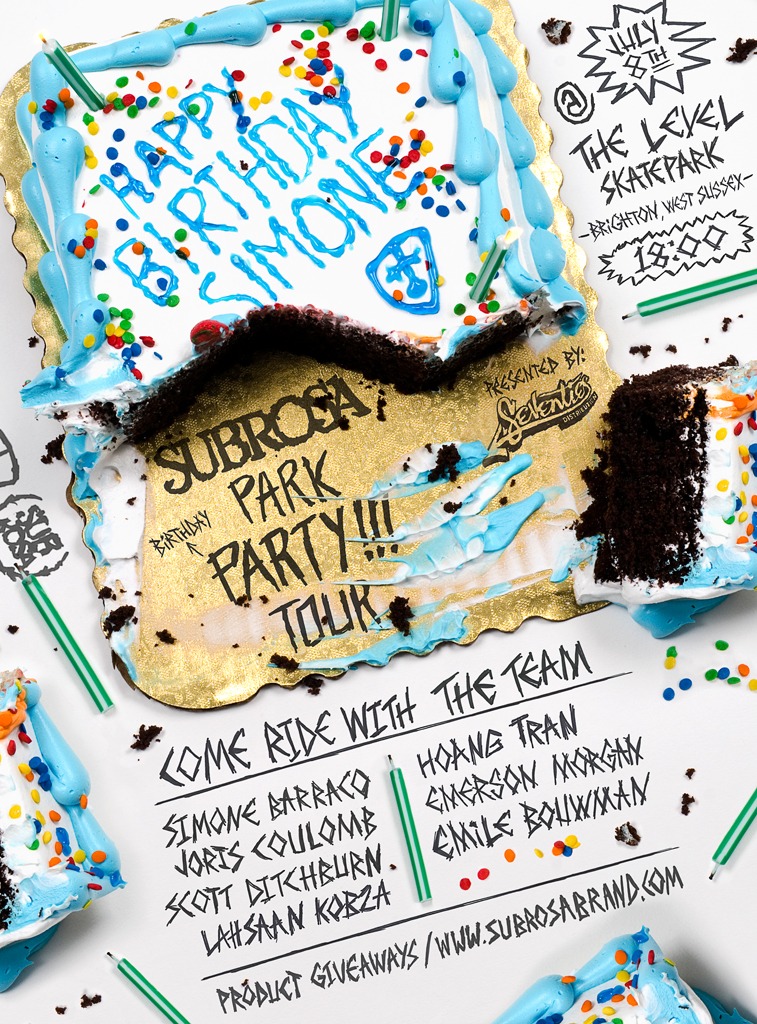 HAPPY
BIRTHDAY
SIMONE
JULY
8TH
@
THE LEVEL
SKATEPARK
-BRIGHTON, WEST SUSSEX-
18:00
PRESENTED BY:
Seventies
DISTRIBUTION
SUBROSA
PARK
BIRTHDAY
PARTY!!!
TOUR
COME RIDE WITH THE TEAM
SIMONE BARRACO
JORIS COULOMB
SCOTT DITCHBURN
LAHSAAN KOBZA
HOANG TRAN
EMERSON MORGAN
EMILE BOUWMAN
PRODUCT GIVEAWAYS / WWW.SUBROSABRAND.COM